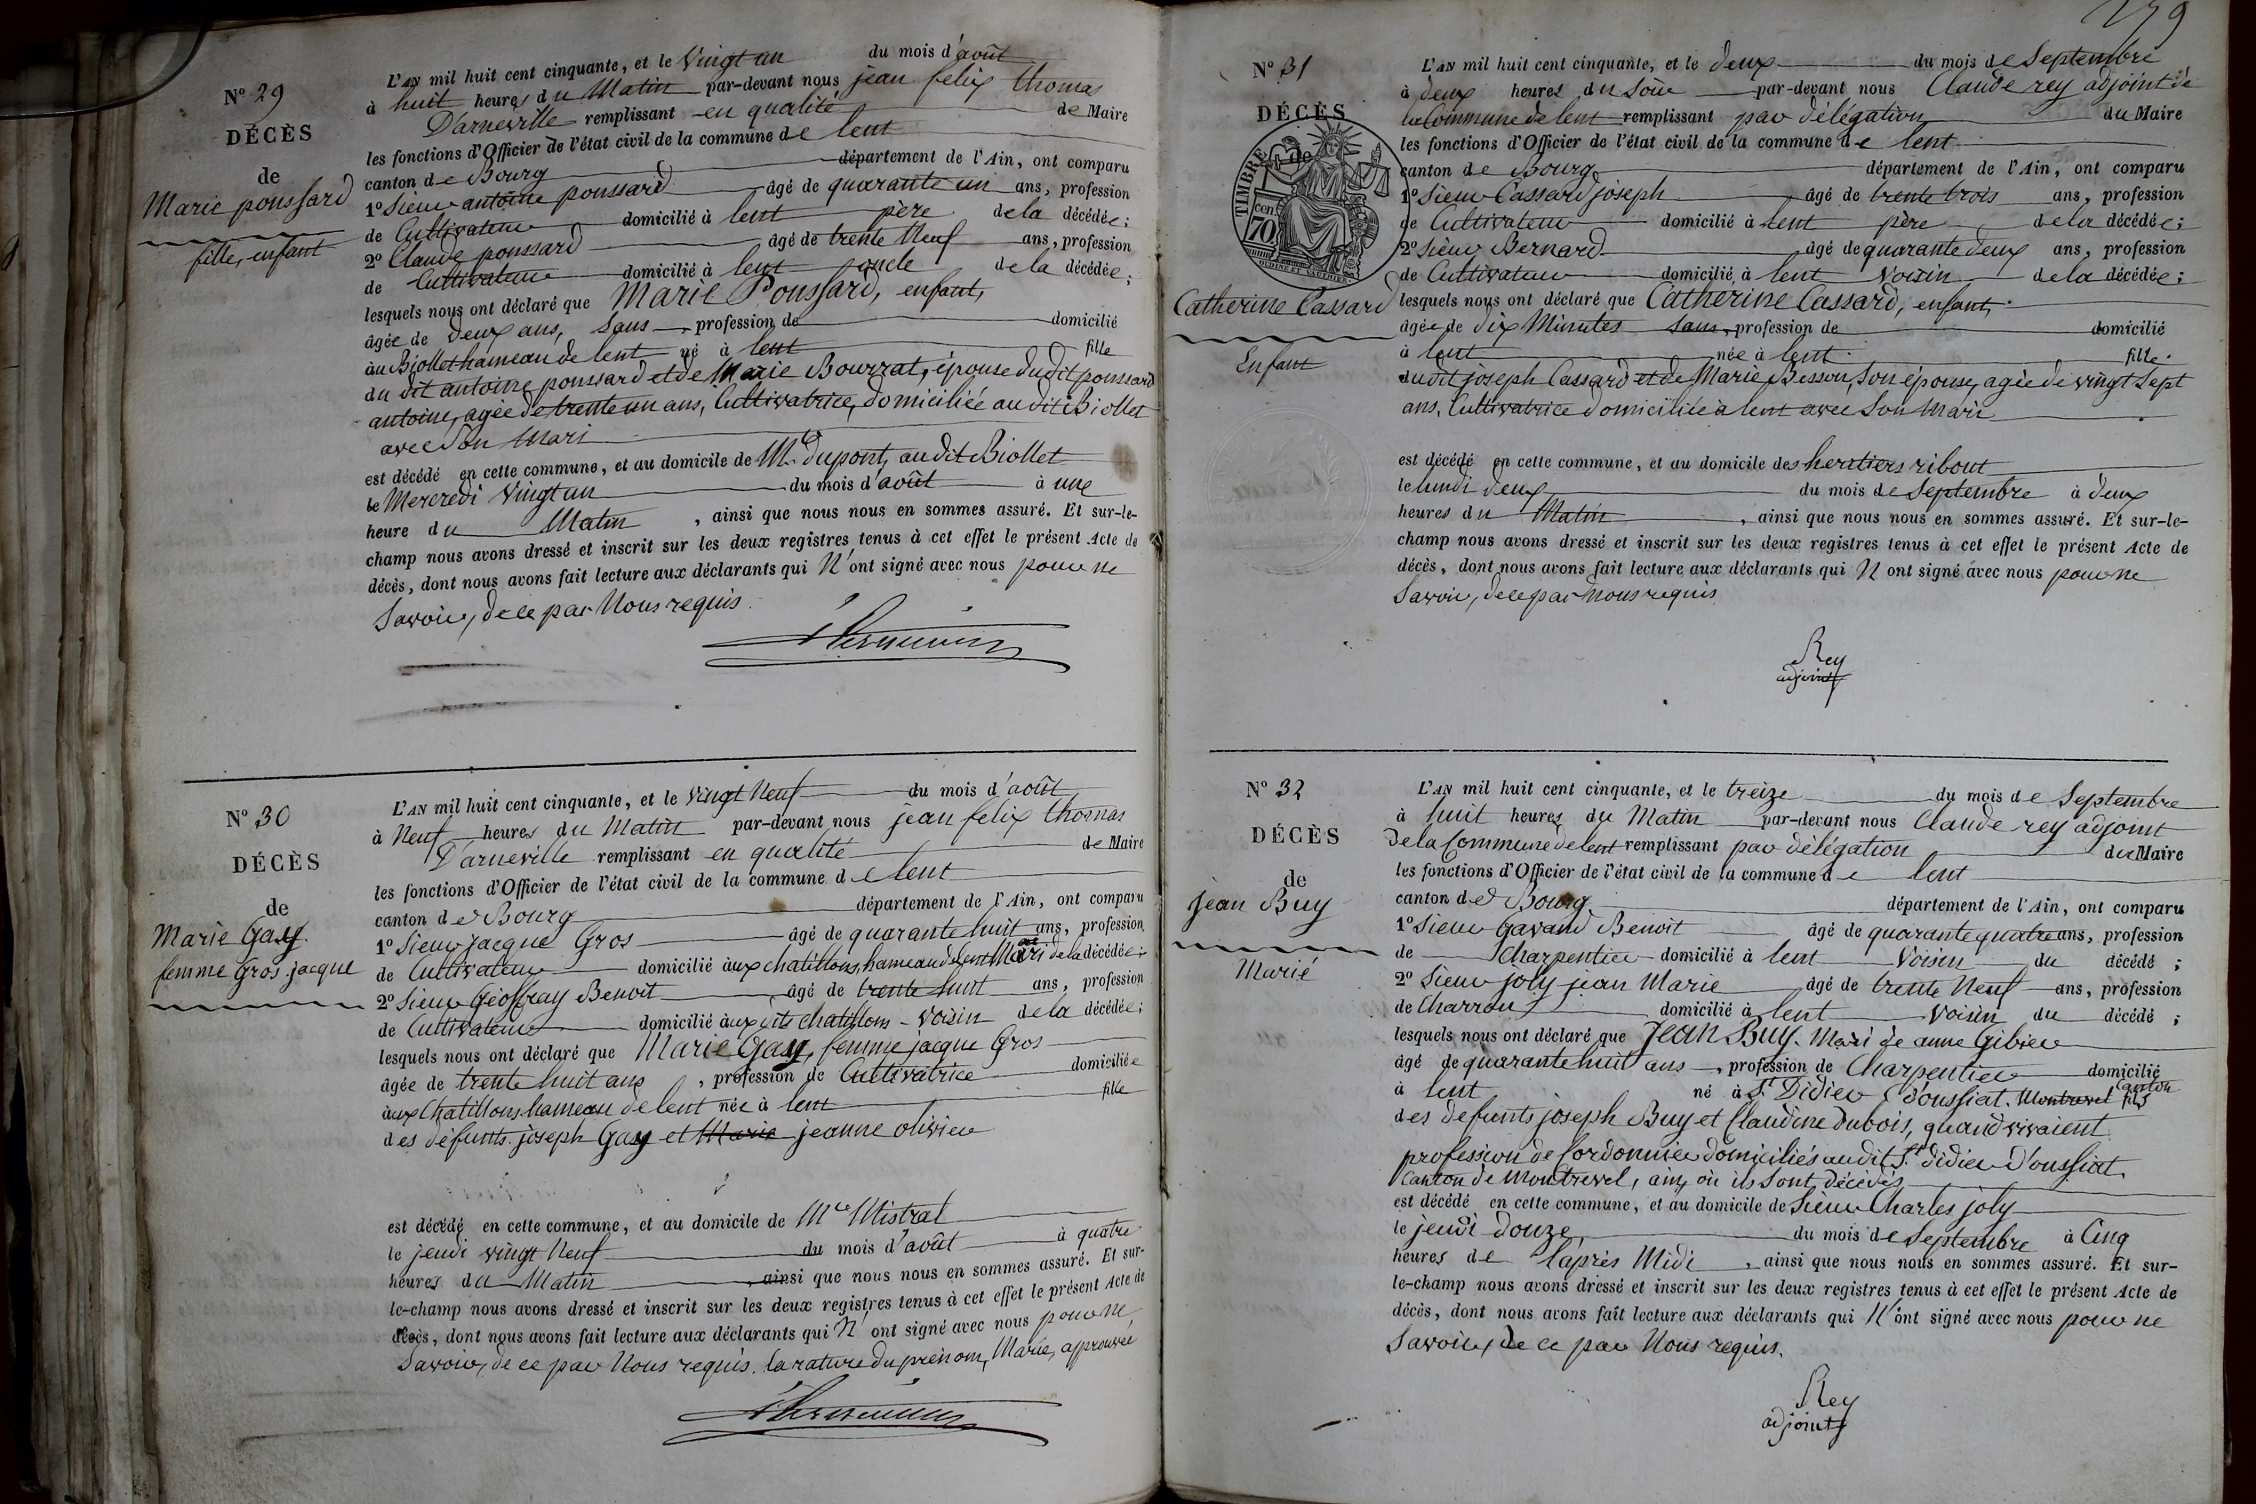 N° 29
DÉCÈS
de
Marie poussard
fille, enfant
L'AN mil huit cent cinquante, et le Vingt un du mois d'août
à huit heures du Matin par-devant nous jean felix thomas
D'arneville remplissant en qualité de Maire
les fonctions d'Officier de l'état civil de la commune de lent
canton de Bourg département de l'Ain, ont comparu
1° Sieur antoine poussard âgé de quarante un ans, profession
de Cultivateur domicilié à lent père de la décédée;
2° Claude poussard âgé de trente Neuf ans, profession
de Cultivateur domicilié à lent oncle de la décédée;
lesquels nous ont déclaré que Marie Poussard, enfant,
âgée de deux ans, Sans profession de domicilié
au Biollet hameau de lent né à lent fille
du dit antoine poussard et de Marie Bourrat, épouse dudit poussard
antoine, agée de trente un ans, Cultivatrice, domiciliée au dit Biollet
avec Son Mari
est décédé en cette commune, et au domicile de Mr dupont, au dit Biollet
le Mercredi Vingt un du mois d'août à une
heure du Matin, ainsi que nous nous en sommes assuré. Et sur-le-
champ nous avons dressé et inscrit sur les deux registres tenus à cet effet le présent Acte de
décès, dont nous avons fait lecture aux déclarants qui N'ont signé avec nous pour ne
Savoir, de ce par Nous requis.
N° 30
DÉCÈS
de
Marie Gay.
femme Gros jacque
L'AN mil huit cent cinquante, et le Vingt Neuf du mois d'août
à Neuf heures du Matin par-devant nous jean felix thomas
D'arneville remplissant en qualité de Maire
les fonctions d'Officier de l'état civil de la commune de lent
canton de Bourg département de l'Ain, ont comparu
1° Sieur jacque Gros âgé de quarante huit ans, profession
de Cultivateur domicilié aux chatillons hameau de lent Mari de la décédée;
2° Sieur Géoffray Benoit âgé de trente huit ans, profession
de Cultivateur domicilié aux dits chatillons - Voisin de la décédée;
lesquels nous ont déclaré que Marie Gay, femme jacque Gros
âgée de trente huit ans, profession de Cultivatrice domiciliée
aux Chatillons hameau de lent née à lent fille
des défunts joseph Gay et Marie jeanne olivier
est décédé en cette commune, et au domicile de Mr Mistral
le jeudi vingt Neuf du mois d'août à quatre
heures du Matin, ainsi que nous nous en sommes assuré. Et sur-
le-champ nous avons dressé et inscrit sur les deux registres tenus à cet effet le présent Acte de
décès, dont nous avons fait lecture aux déclarants qui N'ont signé avec nous pour ne
Savoir, de ce par Nous requis. la rature du prénom, Marie, approuvée
N° 31
DÉCÈS
de
TIMBRE
cen.
70
Catherine Cassard
Enfant
L'AN mil huit cent cinquante, et le deux du mois de Septembre
à deux heures du Soir par-devant nous Claude rey adjoint de
la Commune de lent remplissant par délégation du Maire
les fonctions d'Officier de l'état civil de la commune de lent
canton de Bourg département de l'Ain, ont comparu
1° Sieur Cassard joseph âgé de trente trois ans, profession
de Cultivateur domicilié à lent père de la décédée;
2° Sieur Bernard âgé de quarante deux ans, profession
de Cultivateur domicilié à lent Voisin de la décédée;
lesquels nous ont déclaré que Catherine Cassard, enfant,
âgée de dix Minutes Sans, profession de domicilié
à lent née à lent fille
dudit joseph Cassard et de Marie Besson, Son épouse, agée de vingt Sept
ans, Cultivatrice domiciliée à lent avec Son Mari
est décédé en cette commune, et au domicile des héritiers ribout
le lundi deux du mois de Septembre à deux
heures du Matin, ainsi que nous nous en sommes assuré. Et sur-le-
champ nous avons dressé et inscrit sur les deux registres tenus à cet effet le présent Acte de
décès, dont nous avons fait lecture aux déclarants qui N'ont signé avec nous pour ne
Savoir, de ce par Nous requis
Rey
adjoint
N° 32
DÉCÈS
de
jean Buy
Marié
L'AN mil huit cent cinquante, et le treize du mois de Septembre
à huit heures du Matin par-devant nous Claude rey adjoint
De la Commune de lent remplissant par délégation du Maire
les fonctions d'Officier de l'état civil de la commune de lent
canton de Bourg département de l'Ain, ont comparu
1° Sieur Gavand Benoit âgé de quarante quatre ans, profession
de Charpentier domicilié à lent Voisin du décédé;
2° Sieur joly jean Marie âgé de trente Neuf ans, profession
de Charron domicilié à lent Voisin du décédé;
lesquels nous ont déclaré que Jean Buy. Mari de anne Gibier
âgé de quarante huit ans, profession de Charpentier domicilié
à lent né à St Didier d'oussiat. Montrevel Canton fils
des défunts joseph Buy et Claudine dubois, quand vivaient
profession de Cordonnier domiciliés au dit St didier d'oussiat
Canton de Montrevel, ain, où ils Sont décédés
est décédé en cette commune, et au domicile de Sieur Charles joly
le jeudi douze, du mois de Septembre à Cinq
heures de l'après Midi, ainsi que nous nous en sommes assuré. Et sur-
le-champ nous avons dressé et inscrit sur les deux registres tenus à cet effet le présent Acte de
décès, dont nous avons fait lecture aux déclarants qui N'ont signé avec nous pour ne
Savoir, de ce par Nous requis.
Rey
adjoint